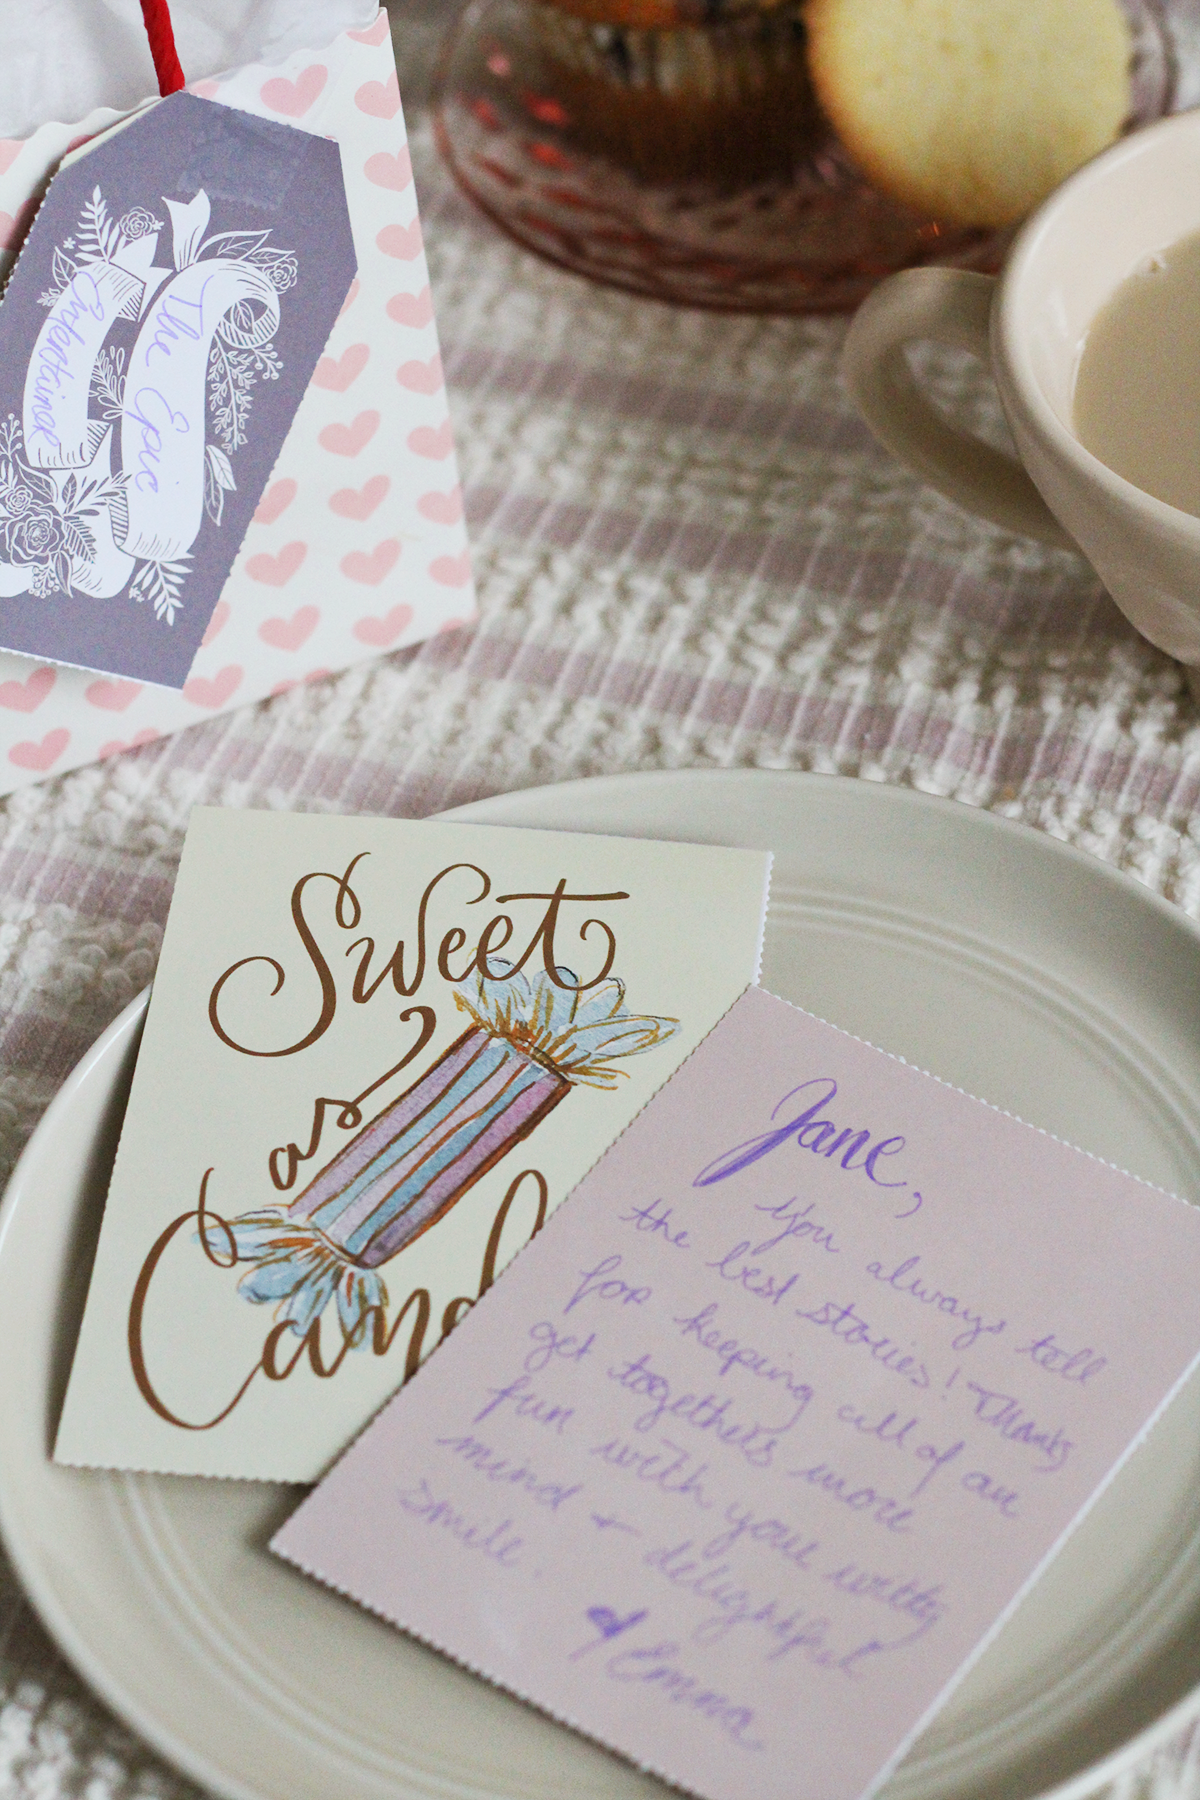 The Epic
Entertainer
Sweet
as
Cand
Jane,
You always tell
the best stories! Thanks
for keeping all of our
get togethers more
fun with your witty
mind + delightful
smile.
Emma